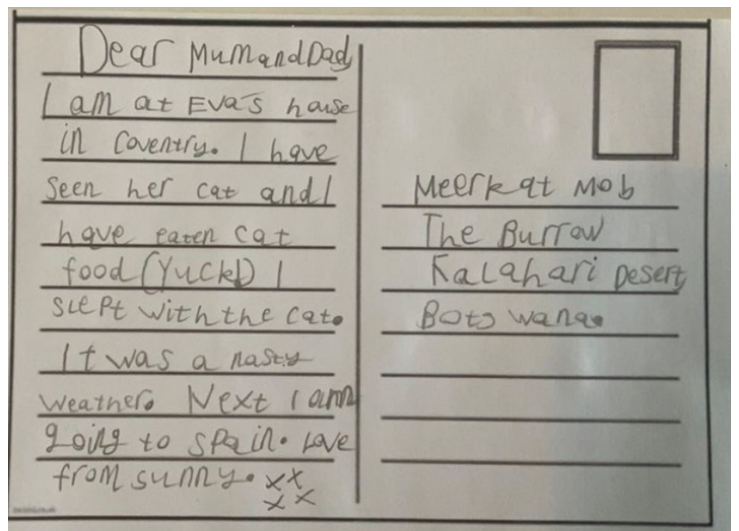 Dear Mum and Dad,
I am at Eva's house
in Coventry. I have
seen her cat and I
have eaten cat
food (Yuck!) I
slept with the cat.
It was a nasty
weather. Next I am
going to spain. Love
from sunny. xx
xx
Meerkat Mob
The Burrow
Kalahari Desert
Botswana.